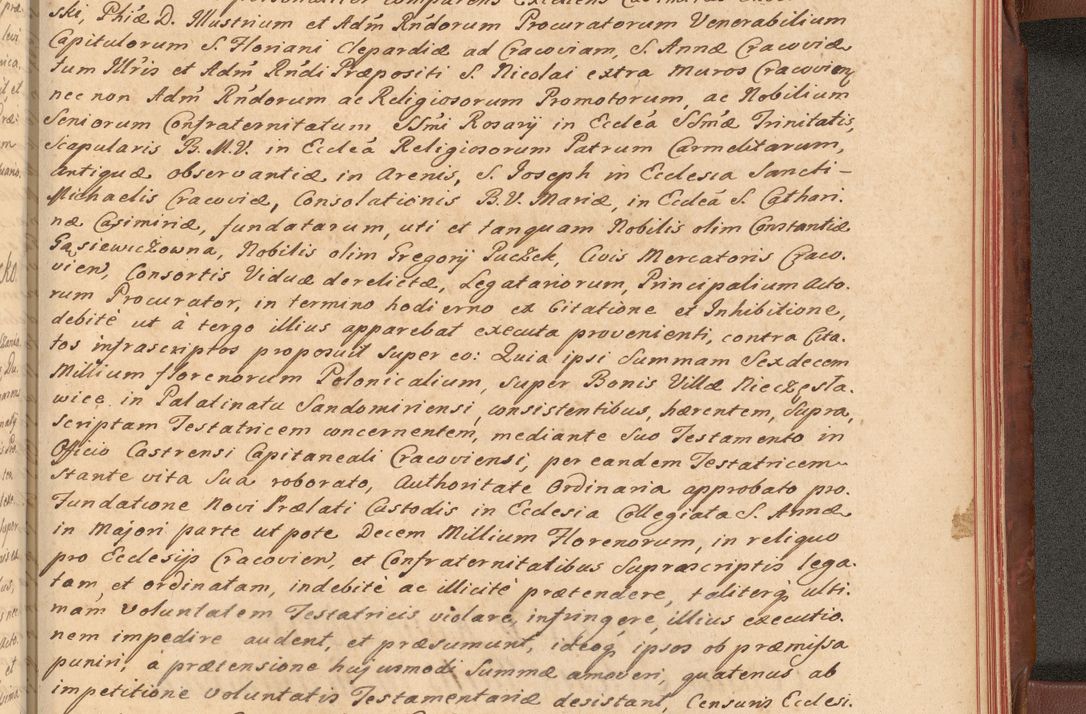 ski, Phiæ D. Illustrium et Adm̃ Rñdorum Procuratorum Venerabilium
Capitulorum S. Floriani Clepardiæ ad Cracoviam, S. Annæ Cracoviæ
tum Illr̃is et Adm̃ Rñdi Præpositi S. Nicolai extra Muros Cracovien̄
nec non Adm̃ Rñdorum ac Religiosorum Promotorum, ac Nobilium
Seniorum Confraternitatum, SSm̃i Rosarij in Eccleã SSm̃æ Trinitatis,
Scapularis B.M.V. in Eccleã Religiosorum Patrum Carmelitarum,
Antiquæ observantiæ in Arenis, S. Joseph in Ecclesia Sancti-
Michaelis Cracoviæ, Consolationis B.V. Mariæ, in Eccleã S. Cathari.
næ Casimiriæ, fundatarum, uti et tanquam Nobilis olim Constantiæ
Gąsiewiczowna, Nobilis olim Gregorij Puczek, Civis Mercatoris Craco.
vien̄, Consortis Viduæ derelictæ, Legatariorum, Principalium Acto.
rum Procurator, in termino hodierno ex Citatione et Inhibitione,
debitè ut à tergo illius apparebat executa provenienti, contra Cita.
tos infrascriptos proposuit super eo: Quia ipsi Summam Sexdecem
Millium florenorum Polonicalium, super Bonis Villæ Nieczęsła.
wice in Palatinatu Sandomiriensi, consistentibus, hærentem, Supra,
scriptam Testatricem concernentem, mediante suo Testamento in
Officio Castrensi Capitaneali Cracoviensi, per eandem Testatricem
Stante vita Sua roborato, Authoritate Ordinaria approbato pro.
Fundatione Novi Prælati Custodis in Ecclesia Collegiata S. Annæ
in Majori parte ut pote Decem Millium Florenorum, in reliquo
pro Ecclesijs Cracovien̄, et Confraternitatibus Suprascriptis lega.
tam, et ordinatam, indebitè ac illicitè prætendere, taliterq̃ ulti.
mam Voluntatem Testatricis violare, infringere, illius executio.
nem impedire audent, et præsumunt, ideoq̃ ipsos ob præmissa
puniri, à prætensione hujusmodi Summæ amoveri, quatenus ab
impetitione Voluntatis Testamentariæ desistant, Censuris Ecclesi.